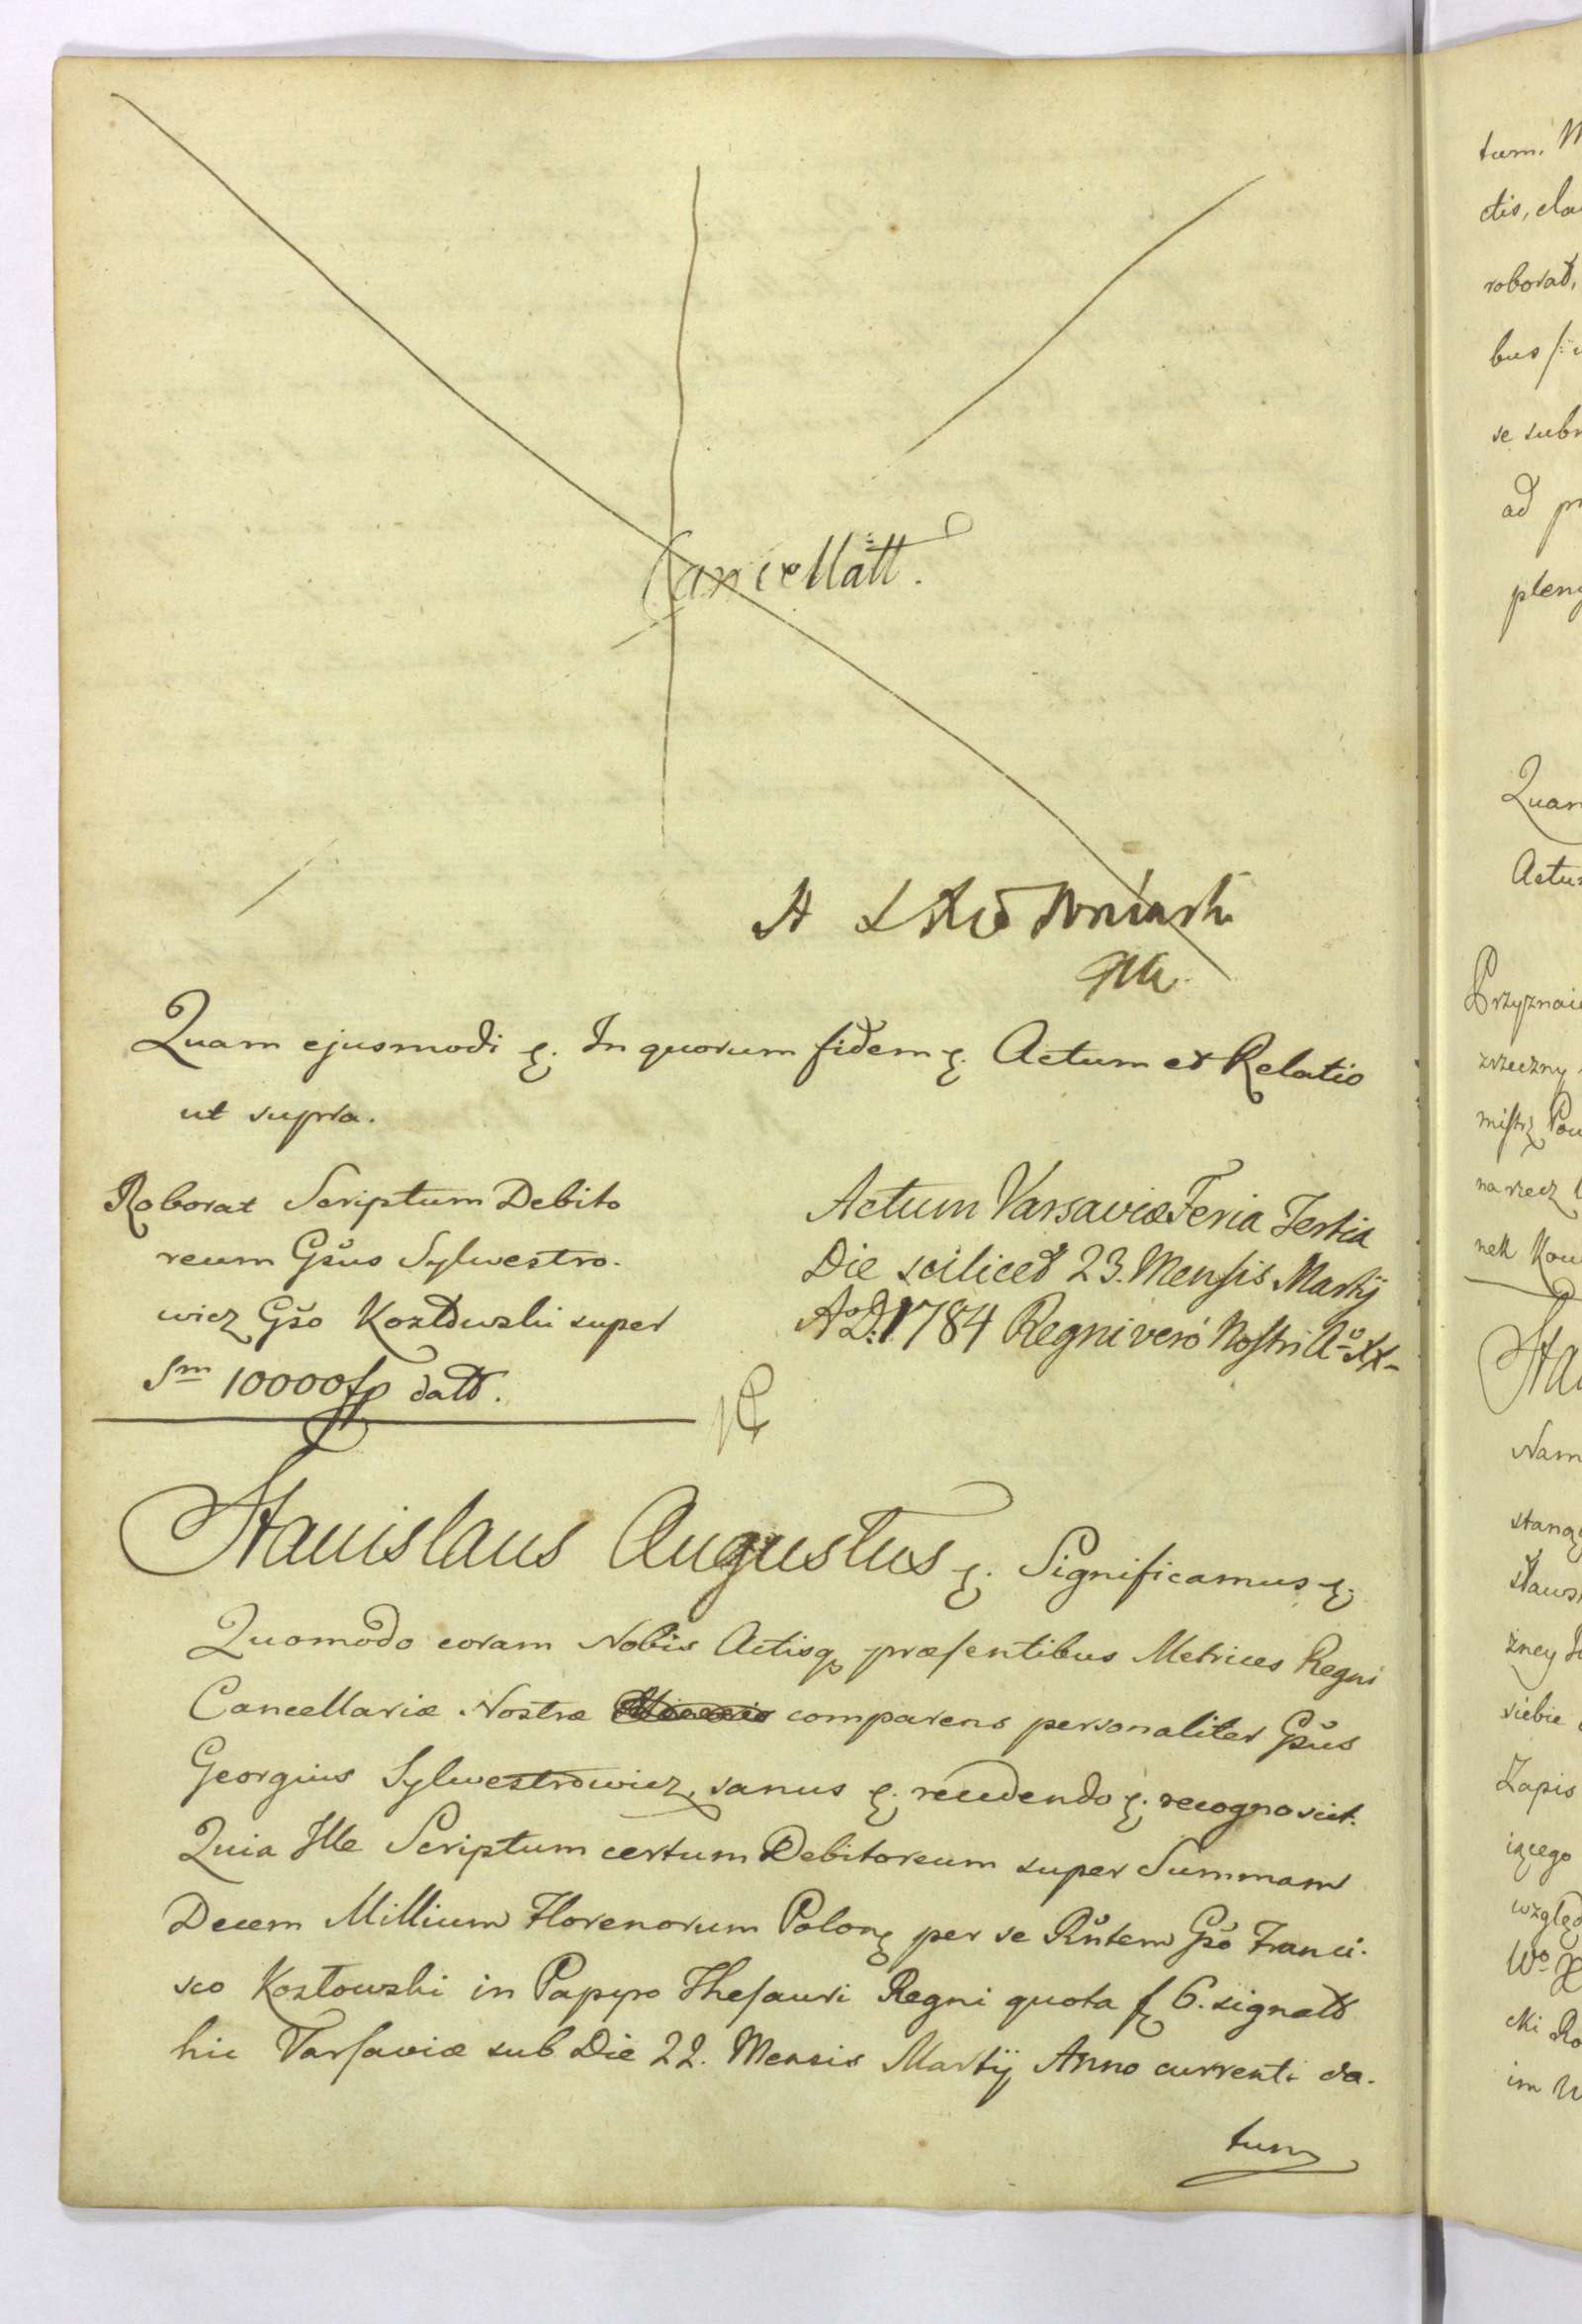 Cancellatt.
A
Quam ejusmodi ꝛ. In quorum fidem ꝛ. Actum et Relatio
ut supra.
Roborat Scriptum Debito
reum Gsus Sylwestro-
wicz Gso Kozłowski super
Sm 10000 fp datt.
Actum Varsaviæ Feria Tertia
Die scilicet 23. Mensis Martij
A.D. 1784 Regni vero Nostri Ao XX-
Stanislaus Augustus ꝛ. Significamus ꝛ.
Quomodo coram Nobis Actisq præsentibus Metrices Regni
Cancellariæ Nostræ comparens personaliter Gsus
Georgius Sylwestrowicz, sanus ꝛ. recedendo ꝛ. recognovit.
Quia Ille Scriptum certum Debitoreum super Summam
Decem Millium Florenorum Polon per se Rntem Gso Franci-
sco Kozłowski in Papyro Thesauri Regni quota f 6. signatt
hic Varsaviæ sub Die 22. Mensis Martij Anno currenti da-
tum
tum.
ctis,
roborat,
bus
se
ad
Quam
Przyznaie
zrzeczny
na rzecz
siebie
Zapis
iącego
Wo
im